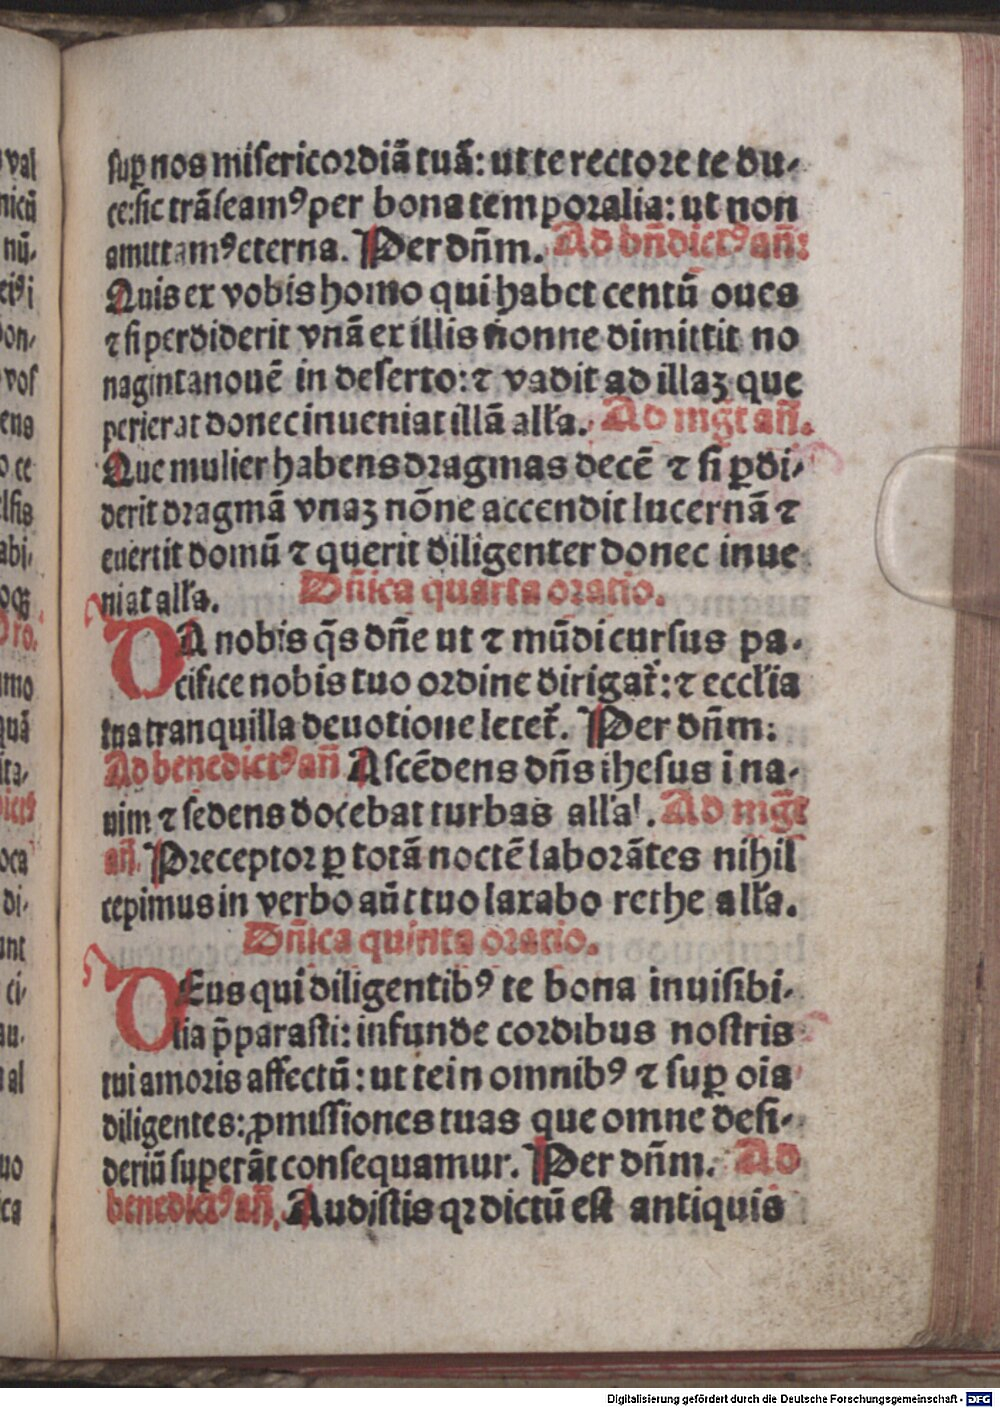 suꝑ nos misericordiā tuā: ut te rectore te du-
ce: sic trāseamꝰ per bona temporalia: ut non
amittamꝰ eterna. Per dn̄m. Ad bn̄dictꝰ an̄:
Quis ex vobis homo qui habet centū oues
⁊ si perdiderit vnā ex illis nonne dimittit no
nagintanouē in deserto: ⁊ vadit ad illaꝫ que
perierat donec inueniat illā alľa. Ad mḡt an̄.
Que mulier habens dragmas decē ⁊ si ꝑdi-
derit dragmā vnaꝫ nōne accendit lucernā ⁊
euertit domū ⁊ querit diligenter donec inue
niat alľa. Dn̄ica quarta oratio.
DA nobis q̄s dn̄e ut ⁊ mūdi cursus pa-
cifice nobis tuo ordine dirigat̄: ⁊ eccľia
tua tranquilla deuotione letet̄. Per dn̄m:
Ad benedictꝰ an̄ Ascēdens dn̄s ihesus i na-
uim ⁊ sedens docebat turbas alľa. Ad mḡt
an̄. Preceptor ꝑ totā noctē laborātes nihil
cepimus in verbo aūt tuo laxabo rethe alľa.
Dn̄ica quinta oratio.
DEus qui diligentibꝰ te bona inuisibi-
lia p̄parasti: infunde cordibus nostris
tui amoris affectū: ut te in omnibꝰ ⁊ suꝑ oīa
diligentes: ꝓmissiones tuas que omne desi-
deriū superāt consequamur. Per dn̄m. Ad
benedictꝰ an̄. Audistis qꝛ dictū est antiquis
Digitalisierung gefördert durch die Deutsche Forschungsgemeinschaft - DFG